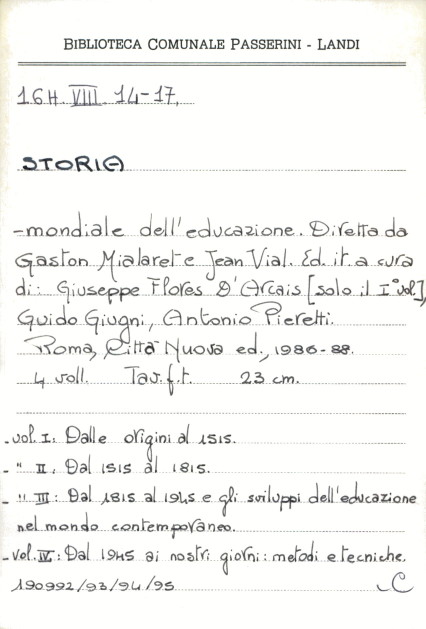 BIBLIOTECA COMUNALE PASSERINI - LANDI
16H. VIII. 14-17.
STORIA
-mondiale dell'educazione. Diretta da
Gaston Mialaret e Jean Vial. Ed. it. a cura
di: Giuseppe Flores D'Arcais [solo il I° vol.],
Guido Giugni, Antonio Pieretti.
Roma, Città Nuova ed., 1986-88.
4 voll. Tav.f.t. 23 cm.
-vol. I: Dalle origini al 1515.
- " II: Dal 1515 al 1815.
- " III: Dal 1815 al 1945 e gli sviluppi dell'educazione
nel mondo contemporaneo.
-vol. IV: Dal 1945 ai nostri giorni: metodi e tecniche.
190992/93/94/95 C